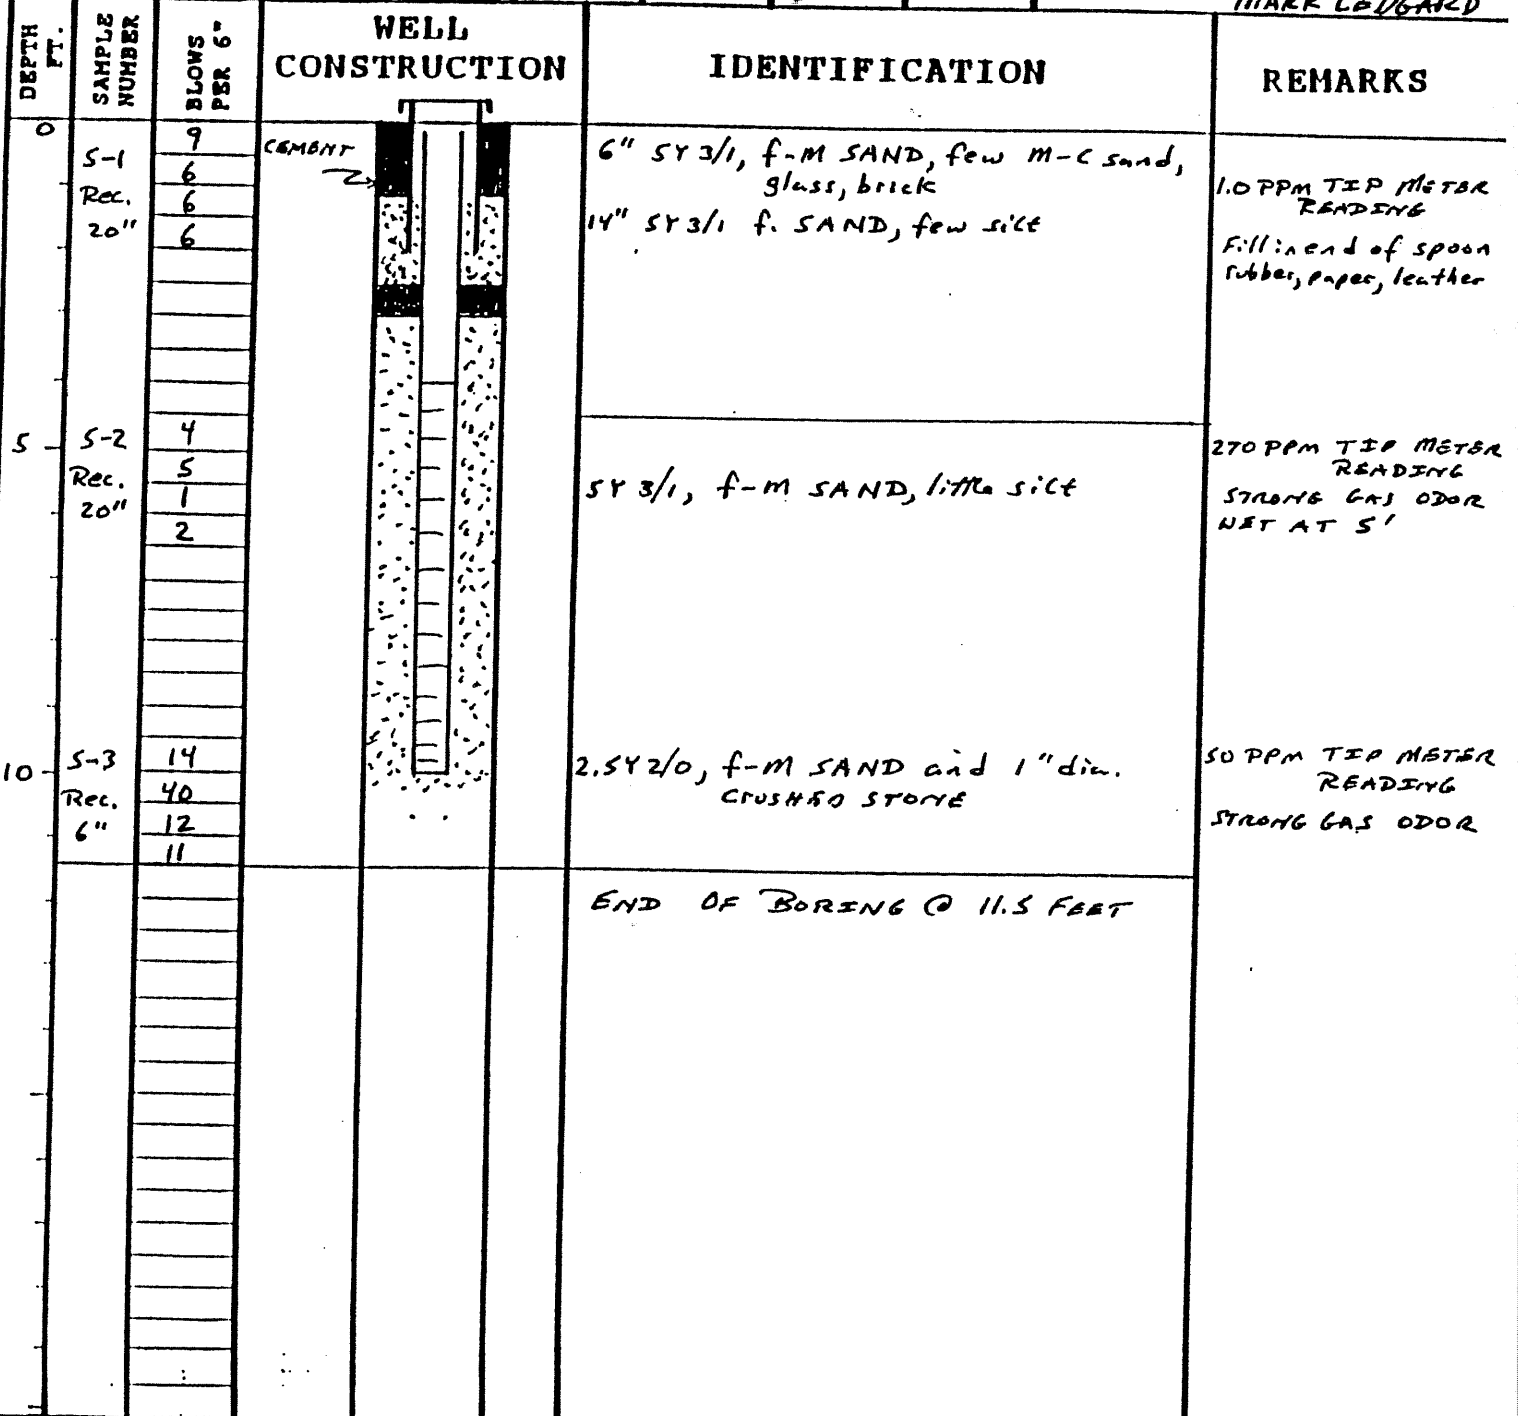 MARK LEDGARD
DEPTH FT.
SAMPLE NUMBER
BLOWS PER 6"
WELL CONSTRUCTION
IDENTIFICATION
REMARKS
0
S-1
Rec.
20"
9
6
6
6
CEMENT
6" 5Y 3/1, f-M SAND, few M-C sand,
glass, brick
14" 5Y 3/1 f. SAND, few silt
1.0 PPM TIP METER
READING
Fill in end of spoon
rubber, paper, leather
5
S-2
Rec.
20"
4
5
1
2
5Y 3/1, f-M SAND, little silt
270 PPM TIP METER
READING
STRONG GAS ODOR
WET AT 5'
10
S-3
Rec.
6"
14
40
12
11
2.5Y 2/0, f-M SAND and 1" dia.
CRUSHED STONE
50 PPM TIP METER
READING
STRONG GAS ODOR
END OF BORING @ 11.5 FEET